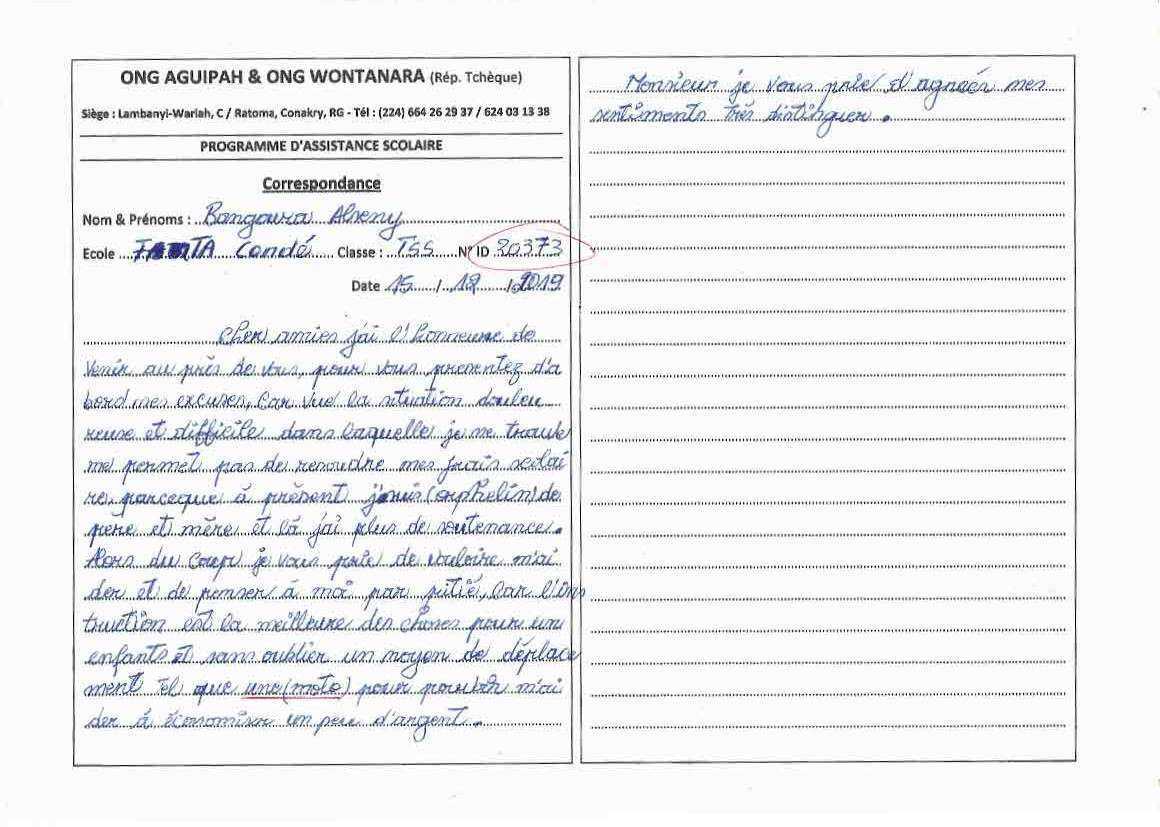 ONG AGUIPAH & ONG WONTANARA (Rép. Tchèque)
Siège : Lambanyi-Wariah, C / Ratoma, Conakry, RG - Tél : (224) 664 26 29 37 / 624 03 13 38
PROGRAMME D'ASSISTANCE SCOLAIRE
Correspondance
Nom & Prénoms : Bangoura Alseny
Ecole Condé Classe : TSS N° ID 20373
Date 15 / 12 / 2019
Cher amies j'ai l'honneure de
venir au près de vous, pour vous presentez d'a
bord mes excuses, car vue la situation doulou
reuse et difficile dans laquelle je me trouve
me permet pas de resoudre mes frais scolai
re parceque à présent (orphelin) de
père et mère et là j'ai plus de soutenance.
Alors du coup je vous prie de vouloire m'ai
der et de penser à moi par pitié, car l'ins
truction est la meilleure des choses pour un
enfants et sans oublier un moyen de déplace
ment tel que une (moto) pour pouvoir m'ai
der à économiser un peu d'argent.
Monsieur je vous prie d'agréés mes
sentiments très distinguer.